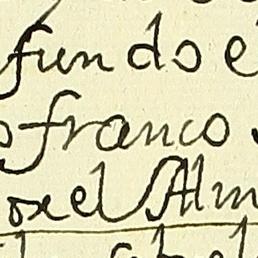 fundo e
franco
oxel Alm